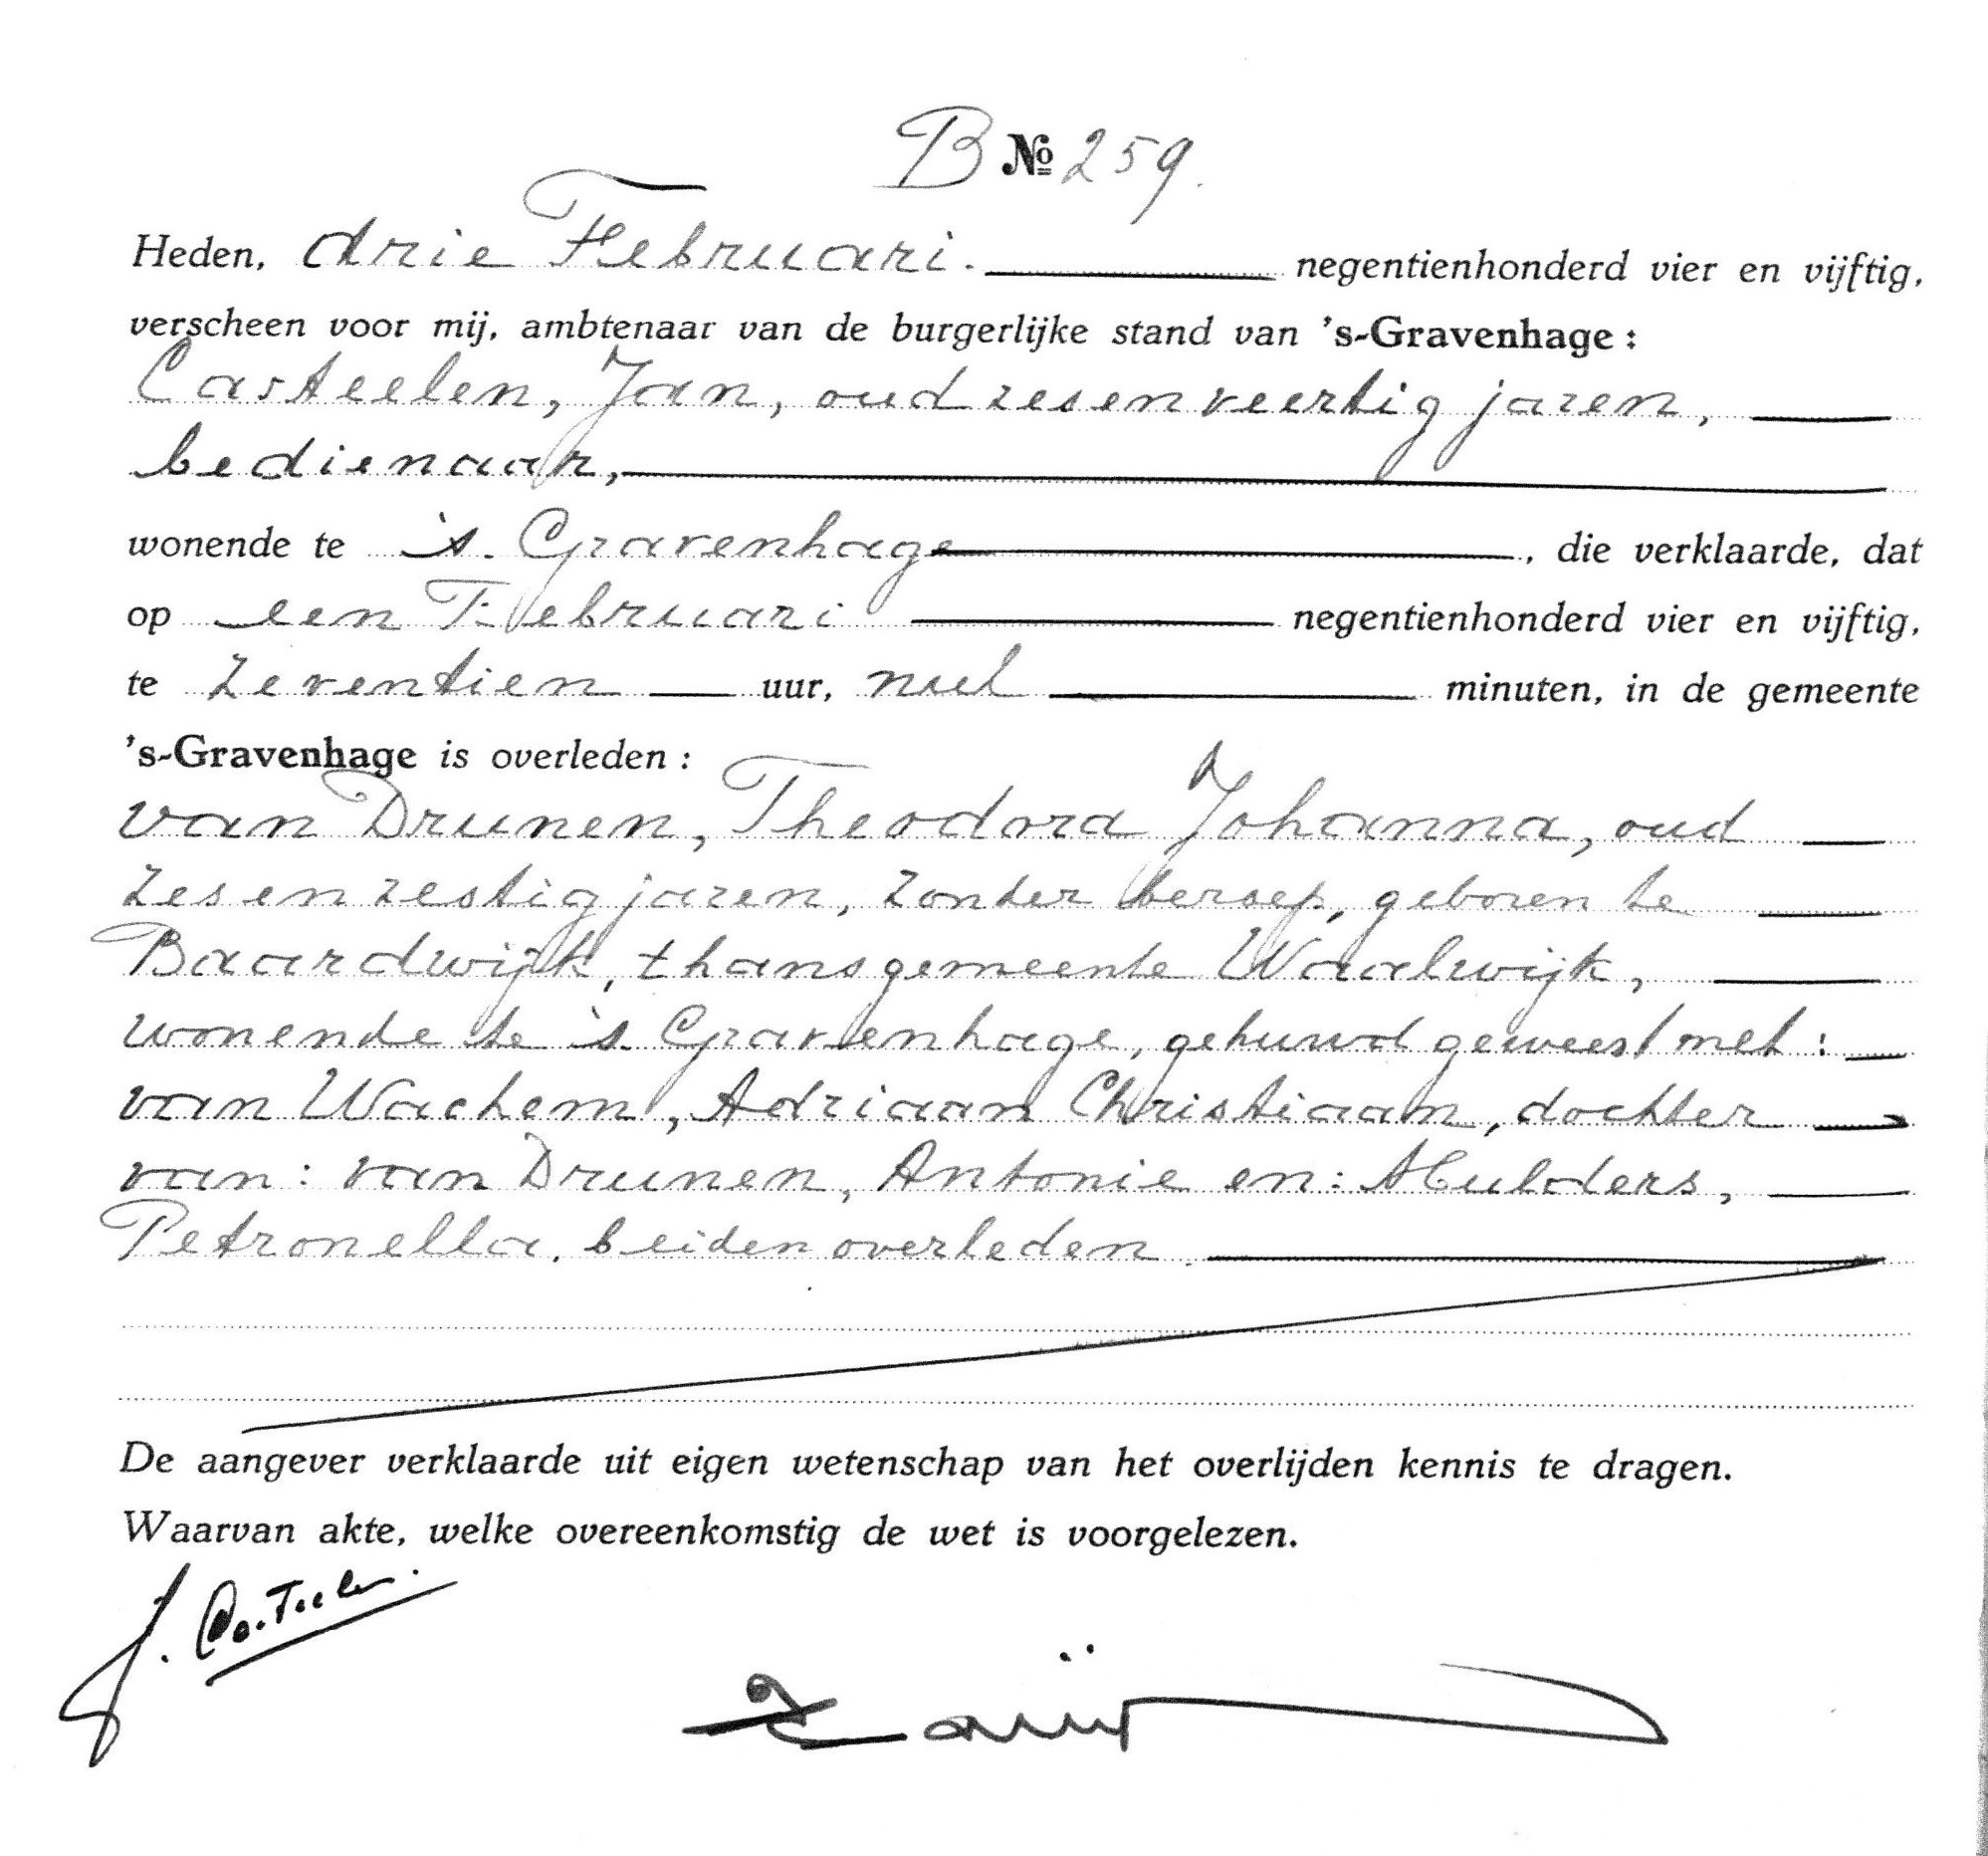 B № 259.
Heden, drie Februari. negentienhonderd vier en vijftig,
verscheen voor mij, ambtenaar van de burgerlijke stand van 's-Gravenhage:
Casteelen, Jan, oud zesenveertig jaren,
bedienaar,
wonende te 's-Gravenhage, die verklaarde, dat
op een Februari negentienhonderd vier en vijftig,
te zeventien uur, nul minuten, in de gemeente
's-Gravenhage is overleden:
van Drunen, Theodora Johanna, oud
zesenzestig jaren, zonder beroep, geboren te
Baardwijk, thans gemeente Waalwijk,
wonende te 's Gravenhage, gehuwd geweest met:
van Wachem, Adriaan Christiaan, dochter
van: van Drunen, Antonie en: Mulders,
Petronella, beiden overleden
De aangever verklaarde uit eigen wetenschap van het overlijden kennis te dragen.
Waarvan akte, welke overeenkomstig de wet is voorgelezen.
J. Casteelen.